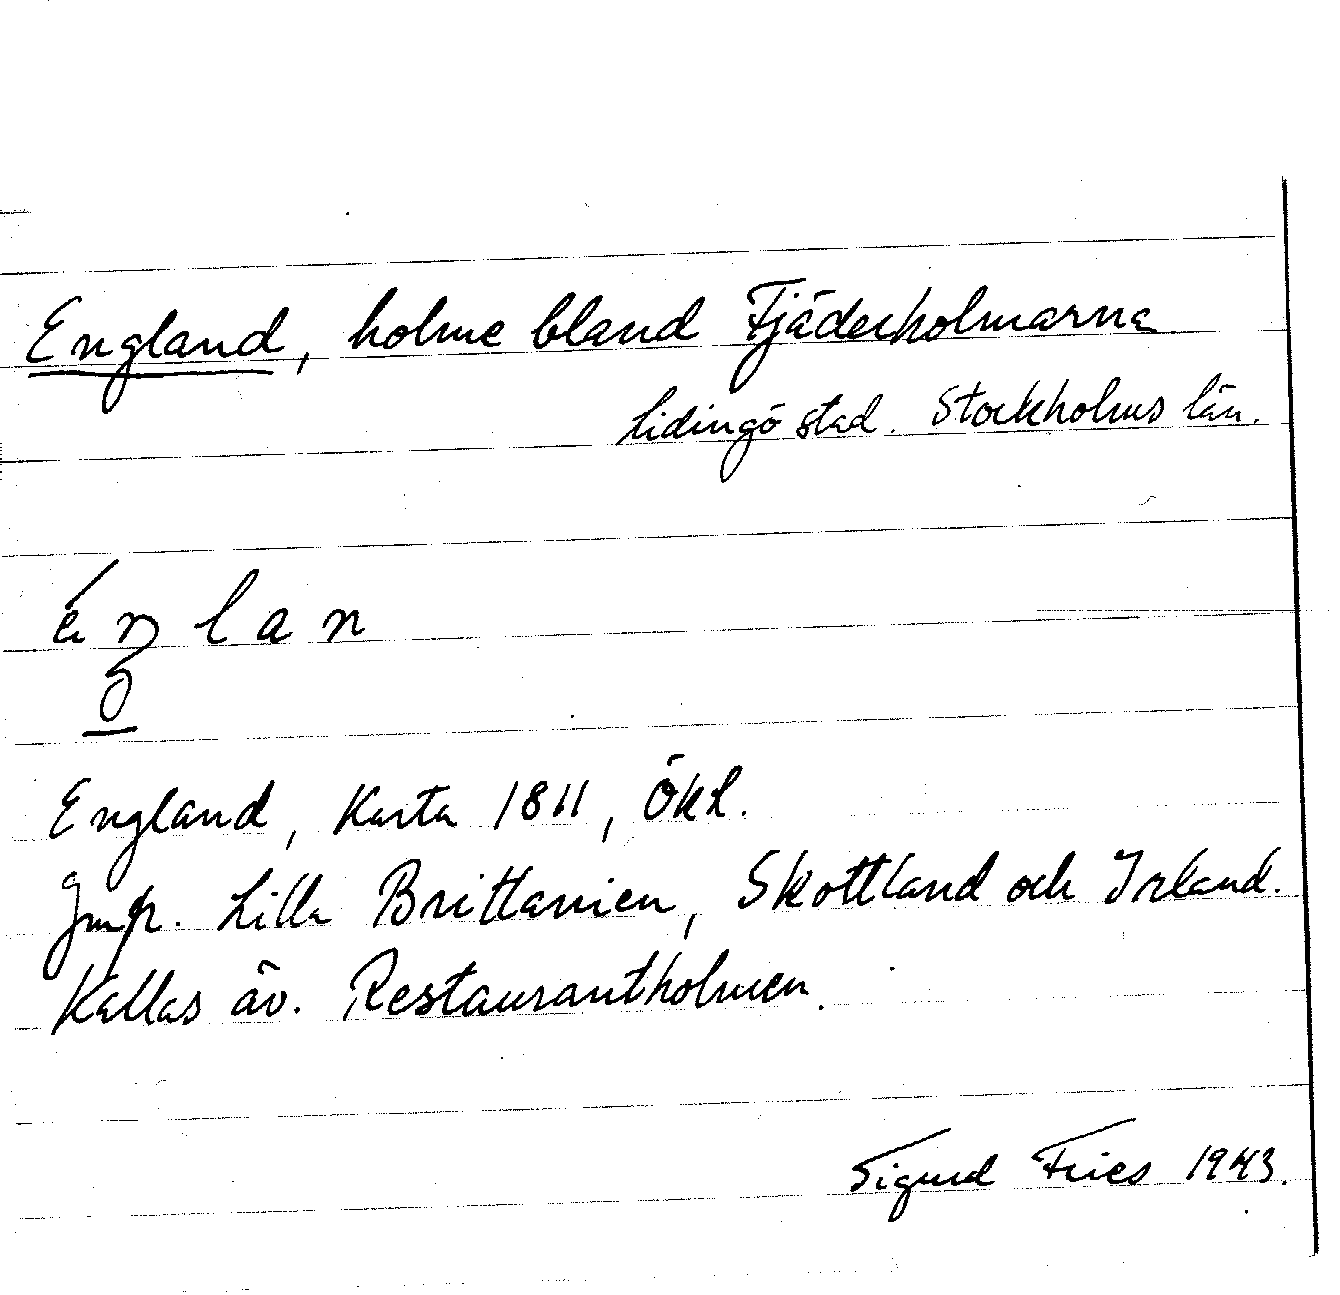 England, holme bland Fjäderholmarna
Lidingö stad. Stockholms län.
éŋlan
o
England, Karta 1811, Ökl.
Jmfr. Lilla Brittanien, Skottland och Irland.
Kallas äv. Restauranthomen.
Sigurd Fries 1943.